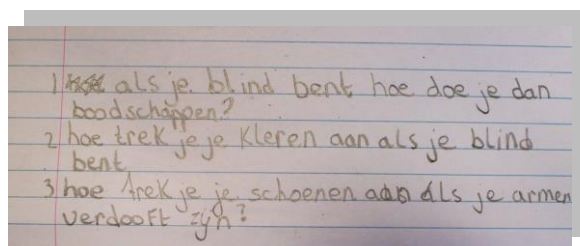 1 als je blind bent hoe doe je dan
boodschappen?
2 hoe trek je je kleren aan als je blind
bent
3 hoe trek je je schoenen aan als je armen
verdooft zijn?